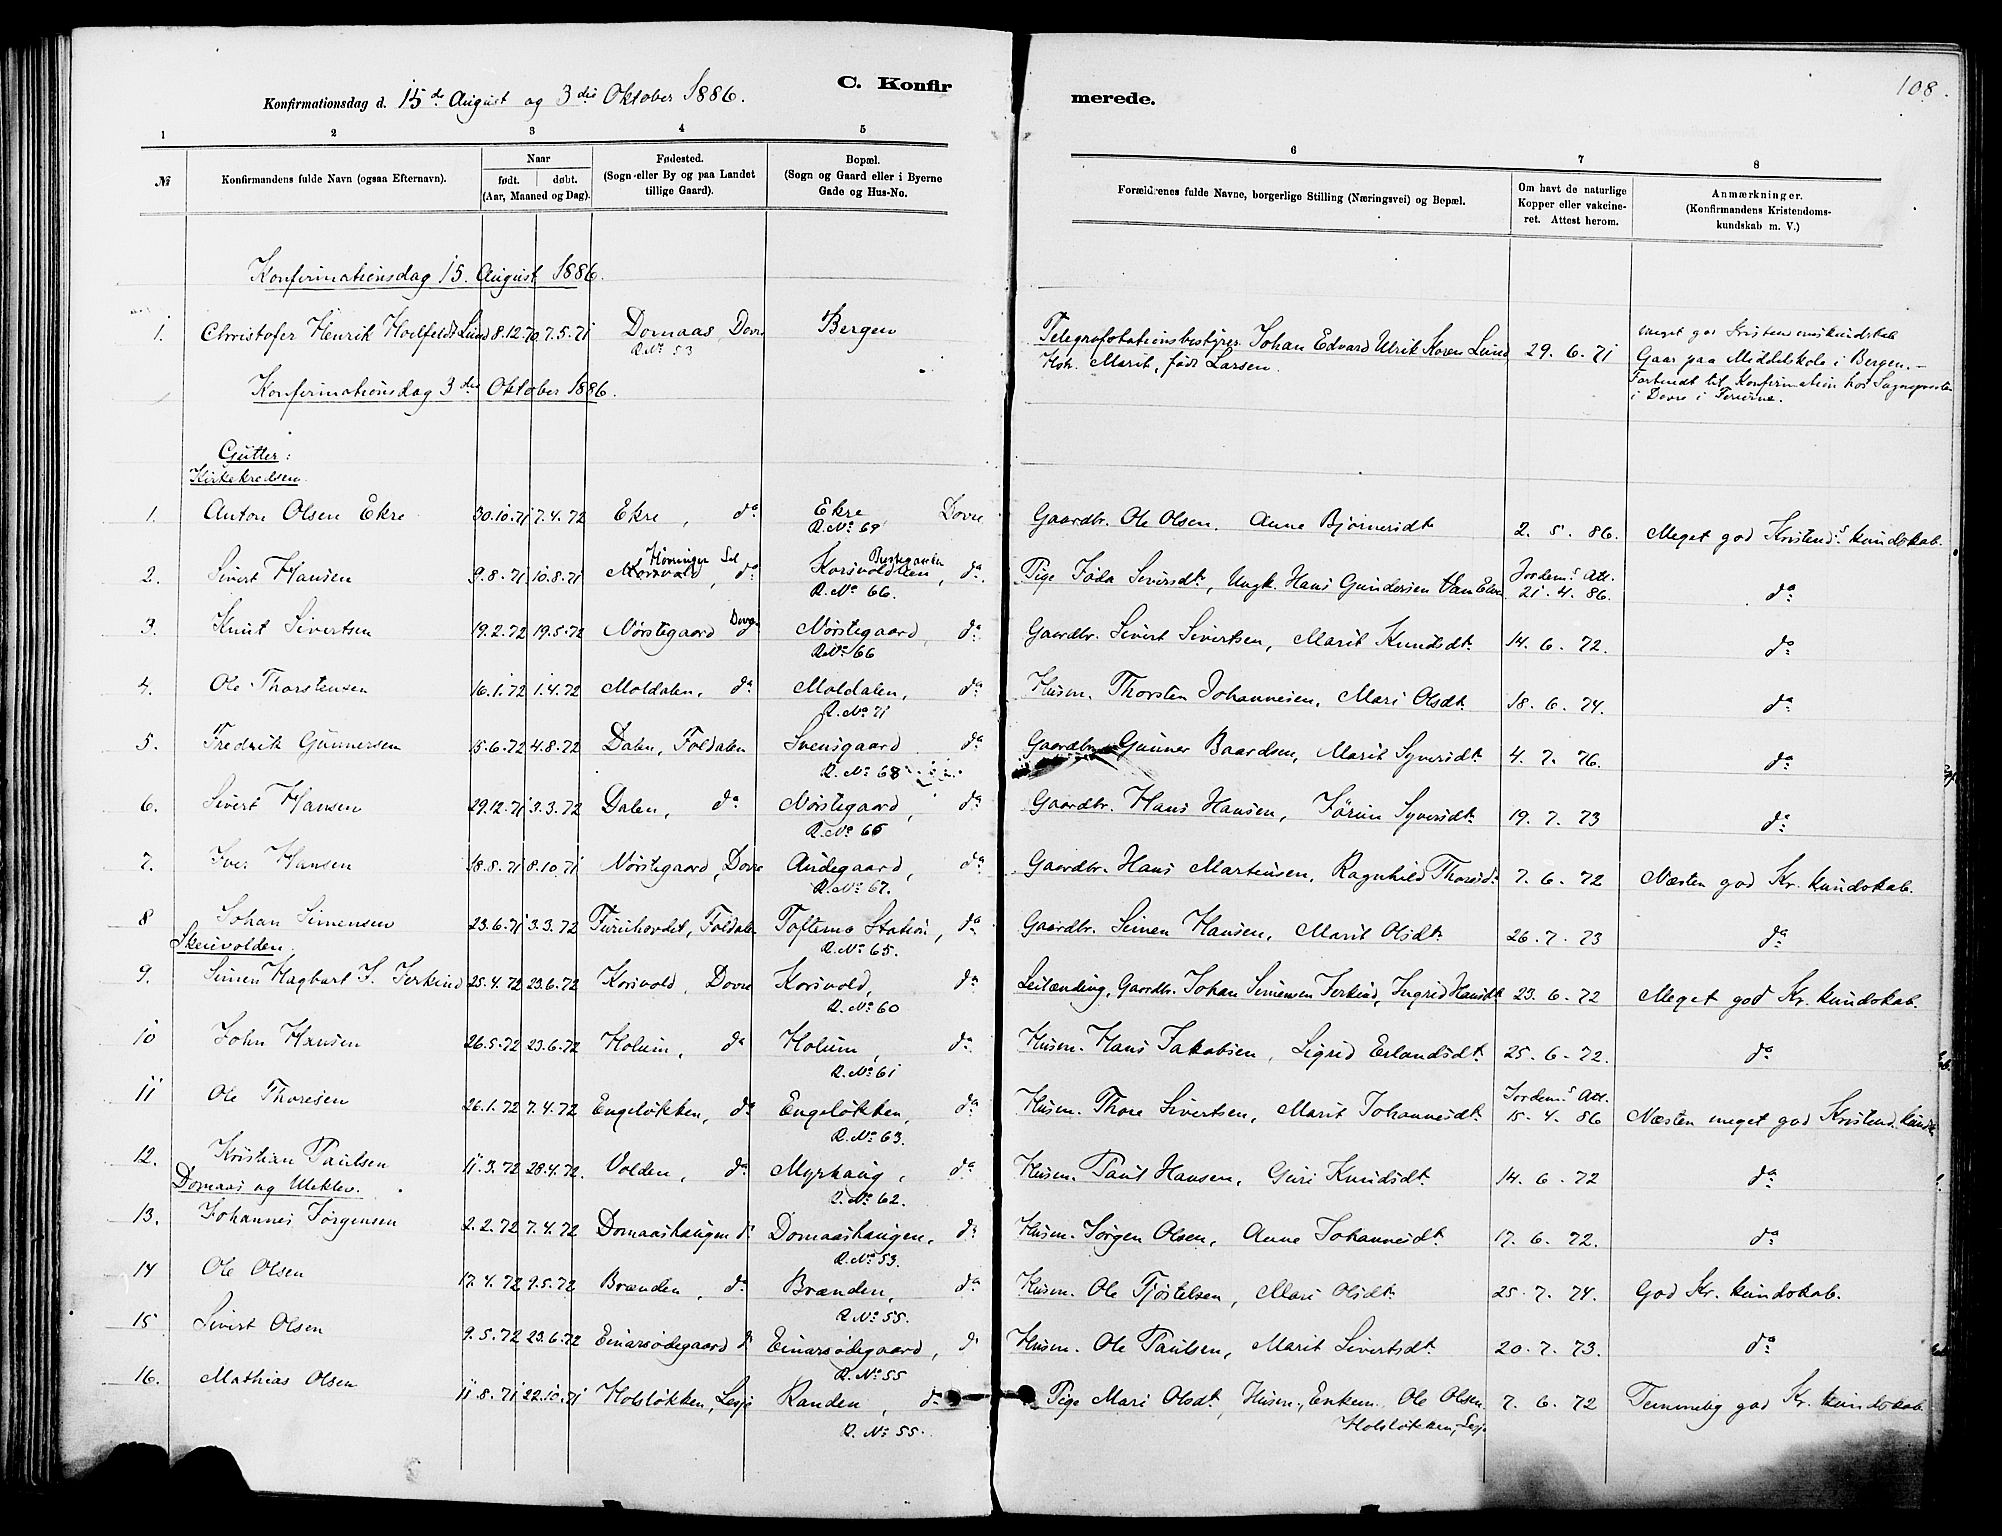 Konfirmationsdag d. 15de August og 3die Oktober 1886.
C. Konfir
merede.
108.
1 2 3 4 5 6 7 8
№ Konfirmandens fulde Navn (ogsaa Efternavn).
Naar
født. døbt.
(Aar, Maaned og Dag).
Fødested.
(Sogn eller By og paa Landet
tillige Gaard).
Bopæl.
(Sogn og Gaard eller i Byerne
Gade og Hus-No.
Forældrenes fulde Navne, borgerlige Stilling (Næringsvei) og Bopæl.
Om havt de naturlige
Kopper eller vakcine-
ret. Attest herom.
Anmærkninger.
(Konfirmandens Kristendoms-
kundskab m. V.)
Konfirmationsdag 15. August 1886.
1. Christofer Henrik Hoelfeldt Lund 8.12.70 7.5.71 Domaas, Dovre Bergen Telegrafstationsbestyrer Johan Edvard Ulrik Koren Lund 29. 6. 71 Meget god Kristendomskundskab
R.No 53 Hst. Marit, født Larsen. Gaar paa Middelskole i Bergen. –
Forberedt til Konfirmation hos Sognepresten
i Dovre i Ferierne.
Konfirmationsdag 3die Oktober 1886.
Gutter:
Kirkekredsen
1. Anton Olsen Ekre 30.10.71 7.4.72 Ekre, da Ekre Dovre Gaardbr. Ole Olsen. Anne Bjørnersdt 2. 5. 86. Meget god Kristends kundskab.
R.No 69
2. Sivert Hansen 9.8.71 10.8.71 Høvringer Sel da Prestegarden Korsvoldlien, da. Pige Jøda Siversdt, Ungk. Hans Gundersen Jordems Att. da
R.No 66. 21. 4. 86.
3. Knut Sivertsen 19.2.72 19.5.72 Nørstegaard Dovre Nørstegaard, da Gaardbr. Sivert Sivertsen, Marit Knudsdt. 14. 6. 72. da
R.No 66
4. Ole Thorstensen 16.1.72 1.4.72 Moldalen, da Moldalen, da Husm. Thorsten Johannesen, Mari Olsdt. 18. 6. 74. da
R.No 71
5. Fredrik Gunnersen 15.6.72 4.8.72 Dalen, Foldalen Svensgaard da Gaardbr. Gunner Baardsen, Marit Syversdt. 4. 7. 76. da
R.No 68
6. Sivert Hansen 29.12.71 3.3.72 Dalen, da Nørstegaard, da Gaardbr. Hans Hansen, Jørun Syversdt. 19. 7. 73 da
R.No 66
7. Iver Hansen 18.8.71 8.10.71 Nørstegaard, Dovre Andegaard, da Gaardbr. Hans Martinsen, Ragnhild Thoresdt. 7. 6. 72 Næsten god Kr. kundskab.
R.No 67.
8 Johan Simensen 23.6.71 3.3.72 Furuhovdet, Foldalen Toftemo Station, da Gaardbr. Simen Hansen, Marit Olsdt. 26. 7. 73 da
R.No 65.
Skeievolden.
9. Simen Hagbart J. Jerkind 25.4.72 23.6.72 Korsvold, Dovre Korsvold, da Leilænding, Gaardbr. Johan Simensen Jerkind, Ingrid Hansdt 23. 6. 72 Meget god Kr. kundskab.
R.No 60
10 John Hansen 26.5.72 23.6.72 Holum, da Holum, da Husm. Hans Jakobsen, Sigrid Erlandsdt. 25. 6. 72. da
R.No 61
11 Ole Thoresen 26.1.72 7.4.72 Engeløkken, da Engeløkken, da Husm. Thore Sivertsen, Marit Johannesdt. Jordems Att. Næsten meget god Kristend. kundsk.
R.No 63. 15. 4. 86
12. Kristian Paulsen 11.3.72 28.4.72. Volden, da Myrhaug, da Husm. Paul Hansen, Guri Knudsdt. 14. 6. 72 da
R.No 62.
Domaas og
13. Johannes Jørgensen 2.2.72 7.4.72 Domaashaugen da Domaashaugen, da Husm. Jørgen Olsen, Anne Johannesdt. 17. 6. 72. da
R.No 53.
14 Ole Olsen 17.4.72 9.5.72 Brænden, da Brænden, da Husm. Ole Tjøstelsen, Mari Olsdt. 25. 7. 74. God Kr. kundskab.
R.No 55.
15 Sivert Olsen 9.5.72 23.6.72 Einarsødegaard da Einarsødegaard, da Husm. Ole Paulsen, Marit Sivertsdt. 20. 7. 73. da
R.No 55
16. Mathias Olsen 11.8.71 22.10.71 Holsløkken, Lesje Randen, da Pige Mari Olsdt, Husm., Enkem. Ole Olsen 7. 6. 72 Temmelig god Kr. kundskab.
R. No 55. Holsløkken, Lesje